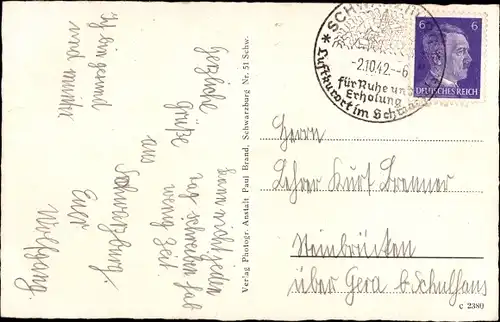 Ich bin gesund
und munter
Herzliche
Grüße
aus
Schwarzburg.
Euer
Wolfgang.
kann nicht jeden
Tag schreiben hab
wenig Zeit.
Verlag Photogr. Anstalt Paul Brand, Schwarzburg Nr. 51 Schw.
-2.10.42.-6
für Ruhe und
Erholung
Luftkurort im Schwarzatal
6 6
DEUTSCHES REICH
Herrn
Lehrer Kurt Brenner
Steinbrücken
über Gera b. Schulhaus
c 2380